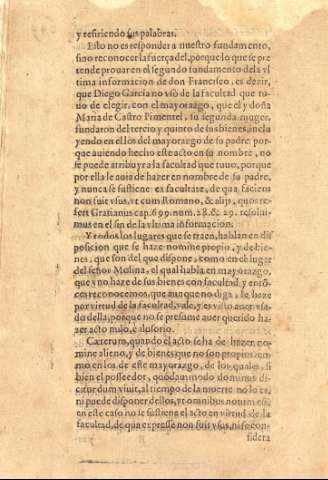 y refiriendo sus palabras.
Esto no es responder a nuestro fundamento,
sino reconocer la fuerça del, porque lo que se pre
tende prouar en el segundo fundamento de la vl
tima informacion de don Francisco, es dezir,
que Diego Garcia no vsò de la facultad que tu-
uo de elegir, con el mayorazgo, que el y doña
Maria de Castro Pimentel, su segunda muger,
fundaron del tercio y quinto de sus bienes, inclu
yendo en ellos los del mayorazgo de su padre: por
que auiendo hecho este acto en su nombre, no
se puede atribuyr a la facultad que tuuo, porque
por ella le auia de hazer en nombre de su padre,
y nunca se sustiene ex facultate, de qua faciens
non fuit vsus, vt cum Romano, & alijs, quos re-
fert Gratianus cap. 699. num. 28. & 29. resolui-
mus en el fin de la vltima informacion.
Y todos los lugares que se traen, hablan en dis
posicion que se haze nomine proprio, y de bie-
nes, que son del que dispone, como en el lugar
del señor Molina, el qual habla en mayorazgo,
que vno haze de sus bienes con facultad, y enton
ces reconocemos, que aunque no diga, le haze
por virtud de la facultad, vale, y es visto auer vsa-
do della, porque no se presume auer querido ha-
zer acto nulo, e ilusorio.
Cæterum, quando el acto se ha de hazer no-
mine alieno, y de bienes que no son propios, co-
mo en los de este mayorazgo, de los quales, si
bien el posseedor, quodammodo dominus di-
citur dum viuit, al tiempo de la muerte no lo es,
ni puede disponer dellos, vt omnibus notum est,
en este caso no se sustiene el acto en virtud de la
facultad, de qua expresse non fuit vsus, ni se con-
B
sidera